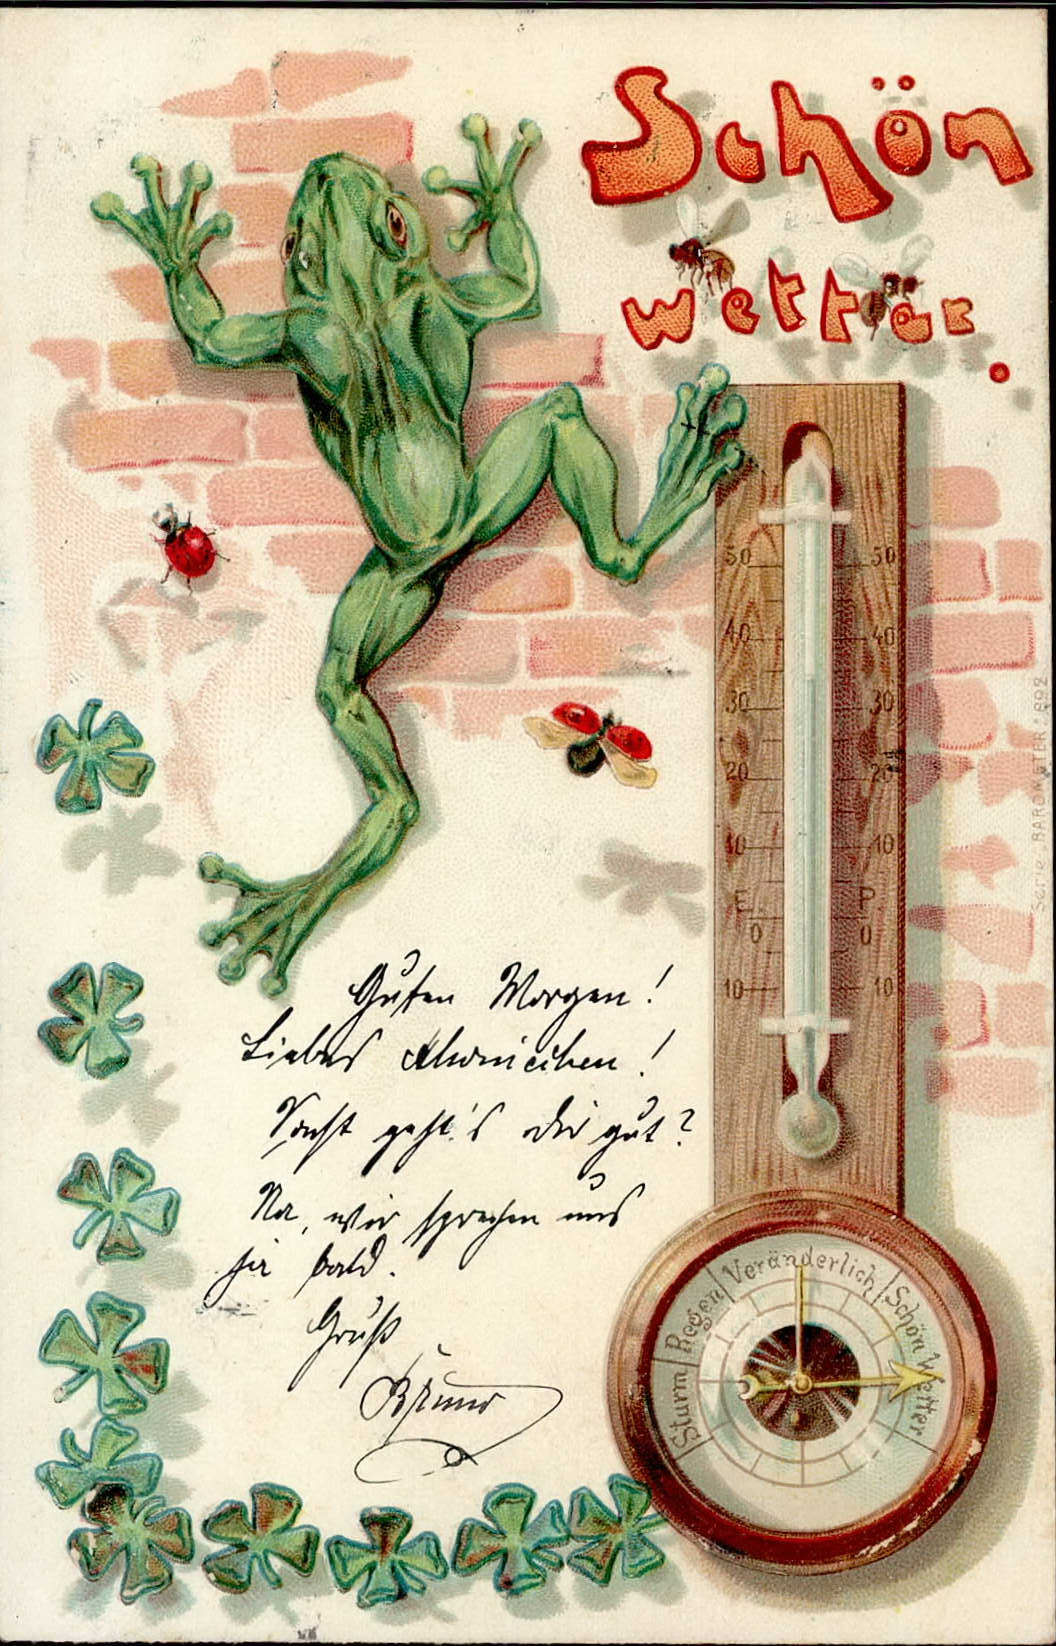 Schön
wetter.
50 50
40 40
30 30
20 20
10 10
E P
0 0
10 10
Serie BAROMETER * 692
Guten Morgen!
Liebes !
Sonst geht's dir gut?
Na, wir sprechen uns
ja bald.
Gruß
Bruno
Sturm Regen Veränderlich Schön Wetter